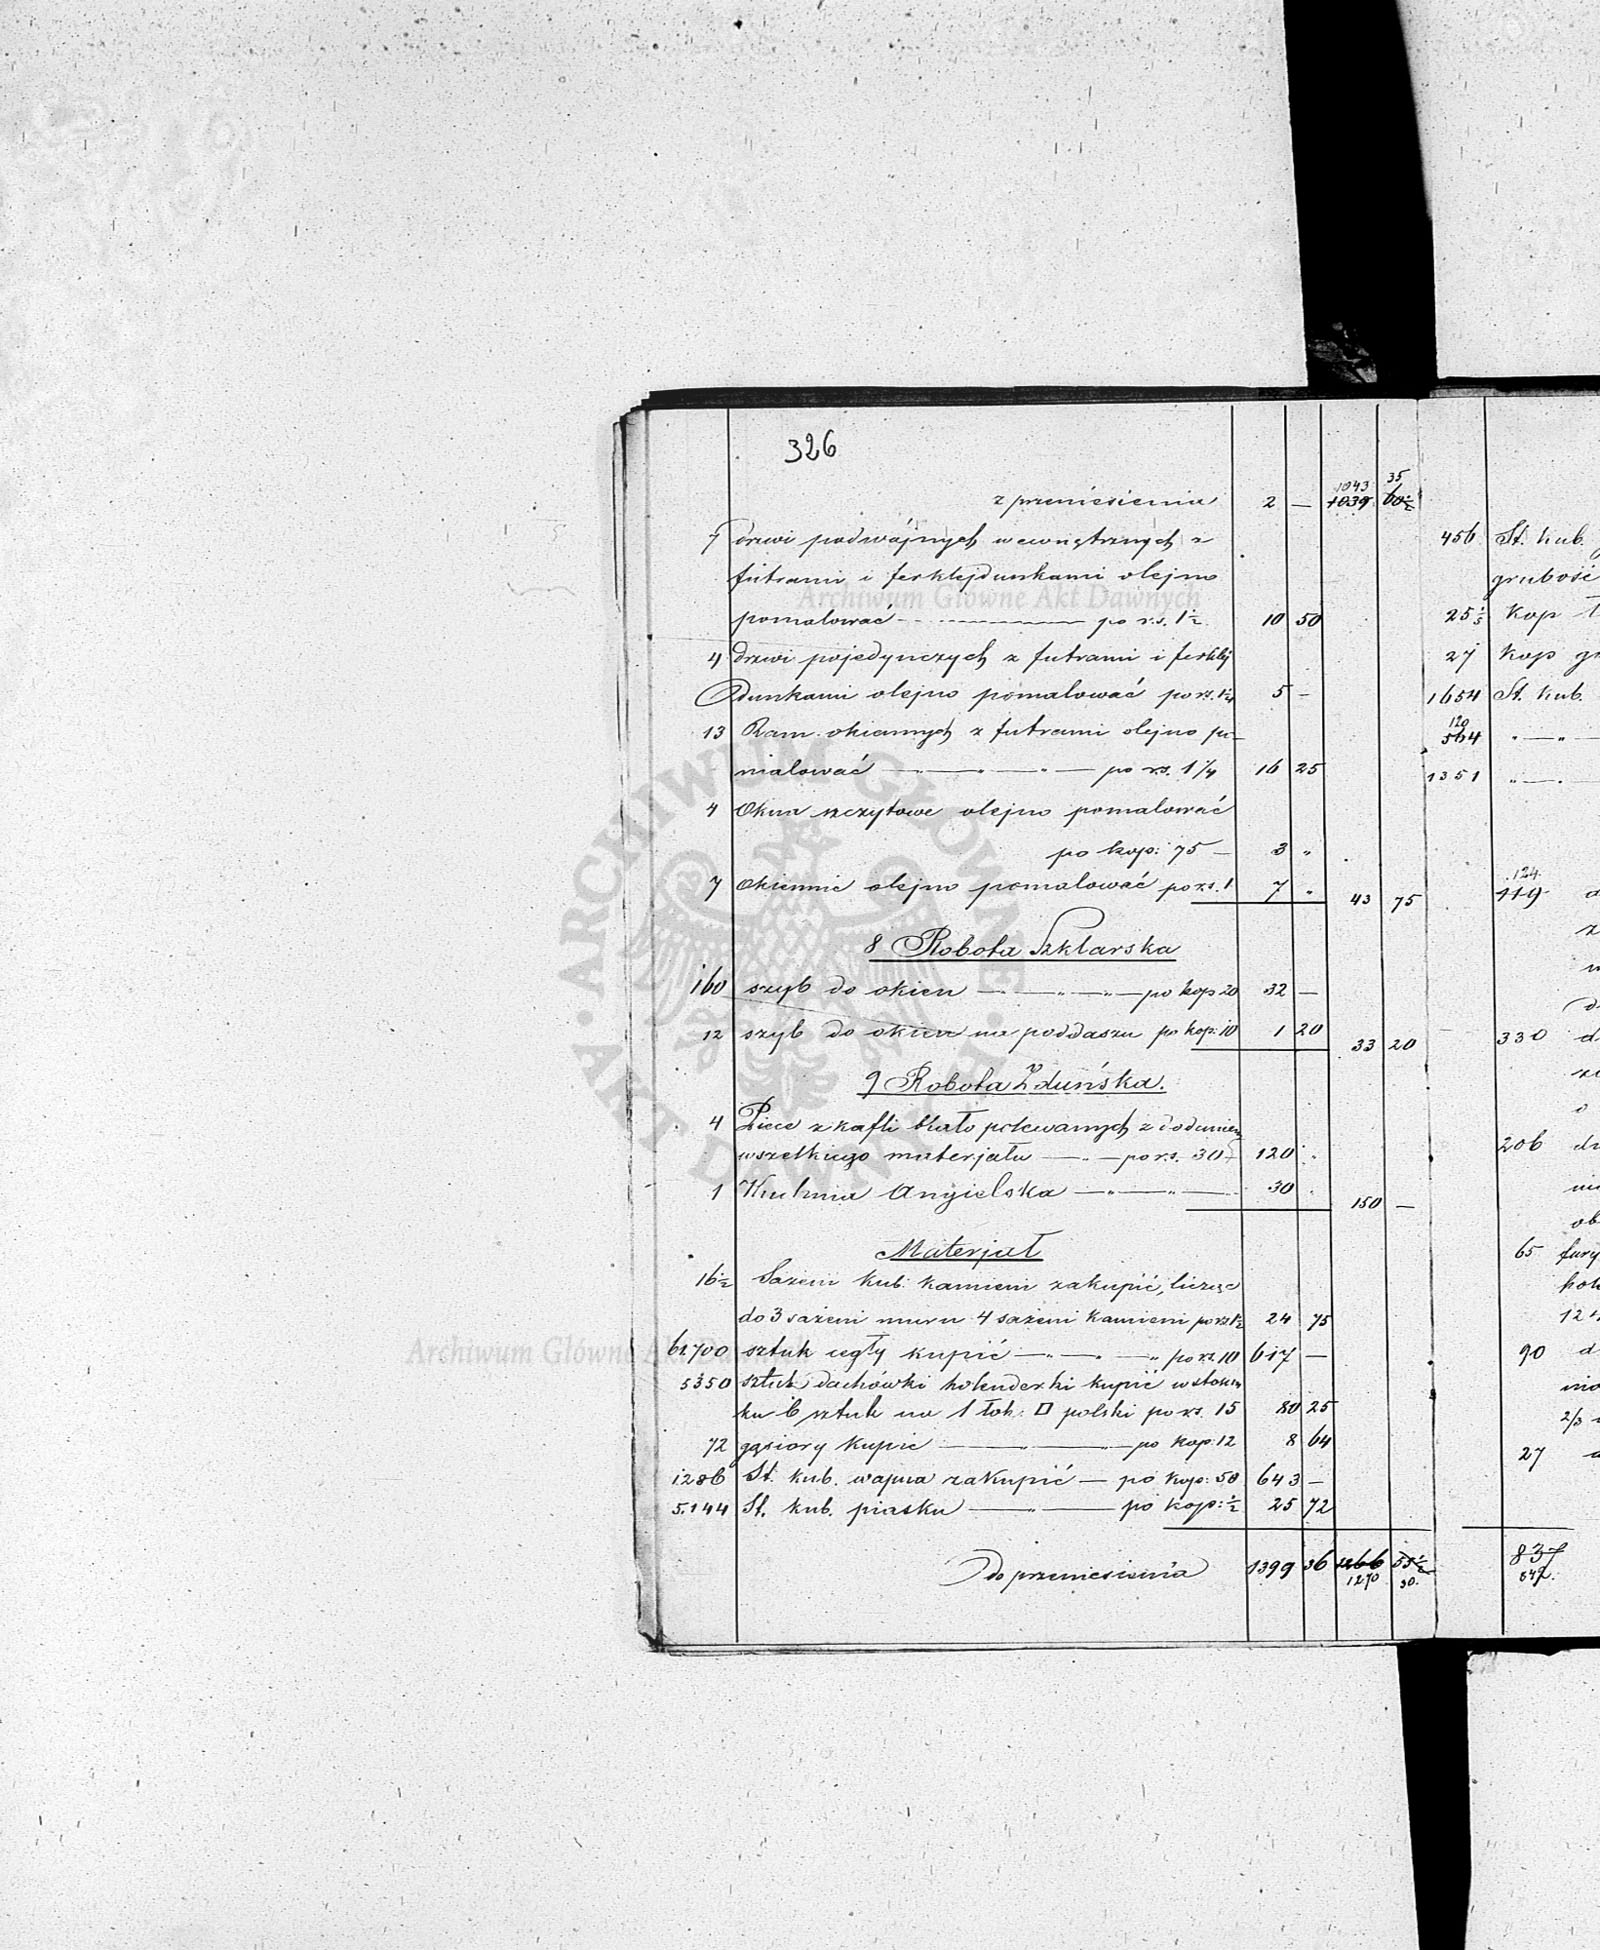 326
z przeniesienia 2 — 1043 1039 35 60½
7 drzwi podwójnych wewnętrznych z
futrami i ferklejdunkami olejno
pomalować — po r.s. 1½ 10 50
4 drzwi pojedynczych z futrami i ferklej
dunkami olejno pomalować po rs. 1¼ 5 —
13 Ram okiennych z futrami olejno po-
malować — " — " — po rs. 1 1/4 16 25
4 Okna szczytowe olejno pomalować
po kop: 75 — 3 "
7 Okiennic olejno pomalować po rs. 1 7 " 43 75
8 Robota Szklarska
160 szyb do okien — " — " — po kop 20 32 —
12 szyb do okien na poddaszu po kop: 10 1 20 33 20
9 Robota Zduńska.
4 Piece z kafli biało polewanych z dodaniem
wszelkiego materjału — " — po rs. 30 120 "
1 Kuchnia Angielska — " — " — 30 " 150 —
Materjał
16½ Sażeni kub: kamieni zakupić, licząc
do 3 sażeni muru 4 sażeni kamieni po rs 1½ 24 75
61700 sztuk cegły kupić — " — " po rs. 10 617 —
5350 sztuk dachówki holenderki kupić w stosun
ku 6 sztuk na 1 łok: □ polski po rs. 15 80 25
72 gąsiory kupić — po kop: 12 8 64
1286 St. kub. wapna zakupić — po kop: 50 643 —
5.144 St. kub. piasku — " — po kop: ½ 25 72
Do przeniesienia 1399 36 1266 1270 55½ 30.
456 St. kub.
grubości
25⅕ kop
27 kop
1654 St. kub.
120
564 " — " —
1351 " —
124
119
330
206
65 fury
90
2/3
27
837
847.
Archiwum Główne Akt Dawnych
ARCHIWUM GŁÓWNE AKT DAWNYCH
Archiwum Główne Akt Dawnych